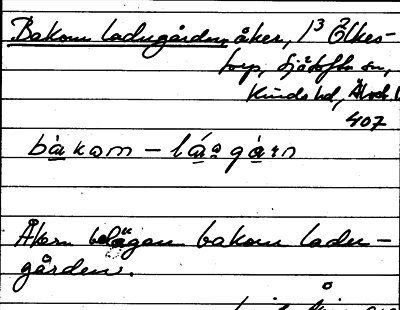 Bakom ladugården, åker, 1³ Ölkes-
torp, Sjötofta sn,
Kinds hd, Älvsb. l
407
bàkom – láagàrn
Åkern belägen bakom ladu-
gården.